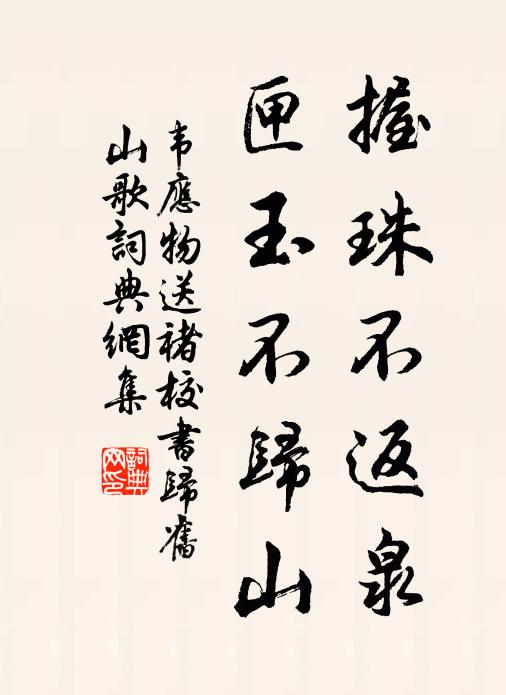 握珠不返泉
匣玉不歸山
韦應物送褚校書歸舊
山歌詞典網集
詞典網印